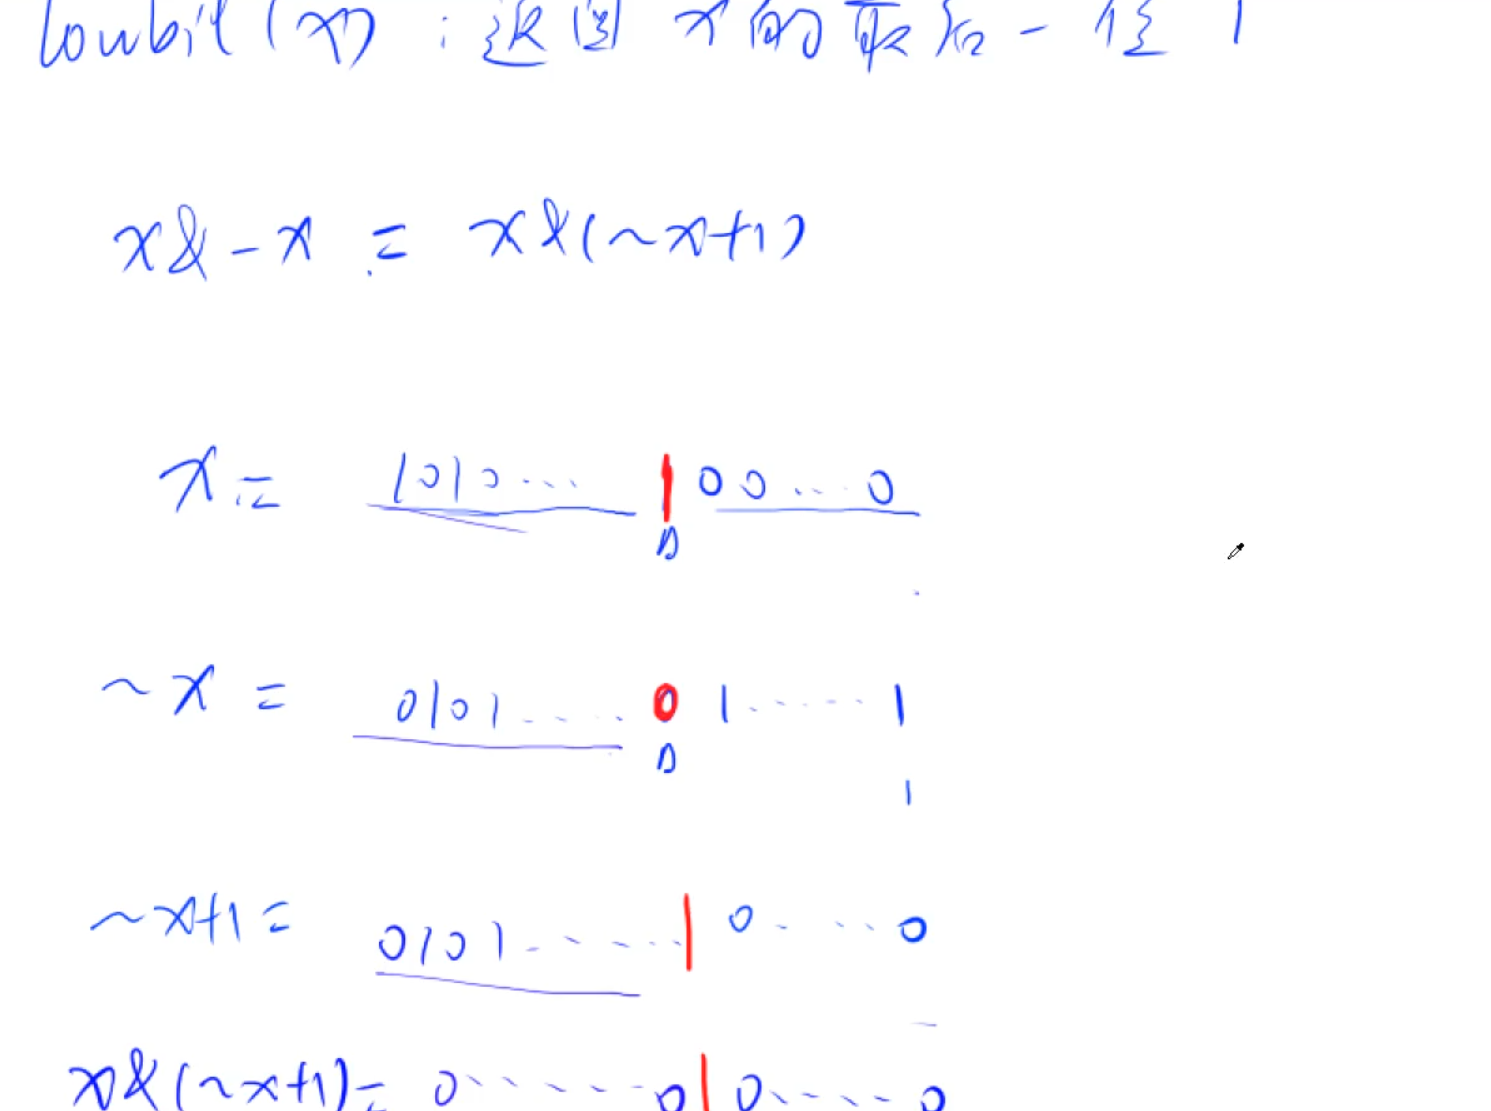 lowbit(x) : 返回 x的最后一位1
x&-x = x&(~x+1)
x= 1010... 1 00...0
~x = 0101.... 0 1.....1
1
~x+1= 0101...... 1 0....0
x&(~x+1)= 0......0 1 0....0